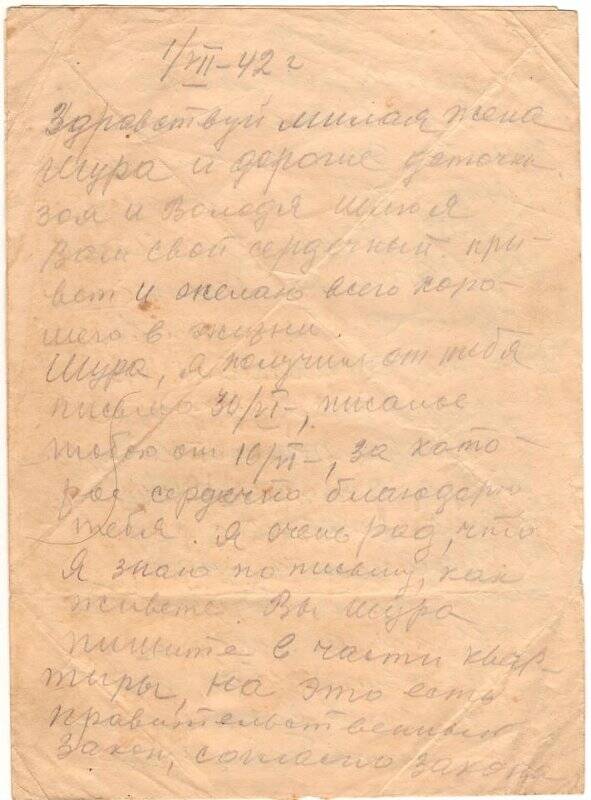 1/VII-42 г
Здравствуй милая жена
Шура и дорогие деточки
Зоя и Володя шлю я
Вам свой сердечный при-
вет и желаю всего хоро-
шего в жизни.
Шура, я получил от тебя
письмо 30/VI-, писаное
тобою от 16/VI-, за кото-
рое сердечно благодарю
тебя. Я очень рад, что
я знаю по письму, как
живете. Вы Шура
пишите в части квар-
тиры, на это есть
правительственный
закон, согласно закона